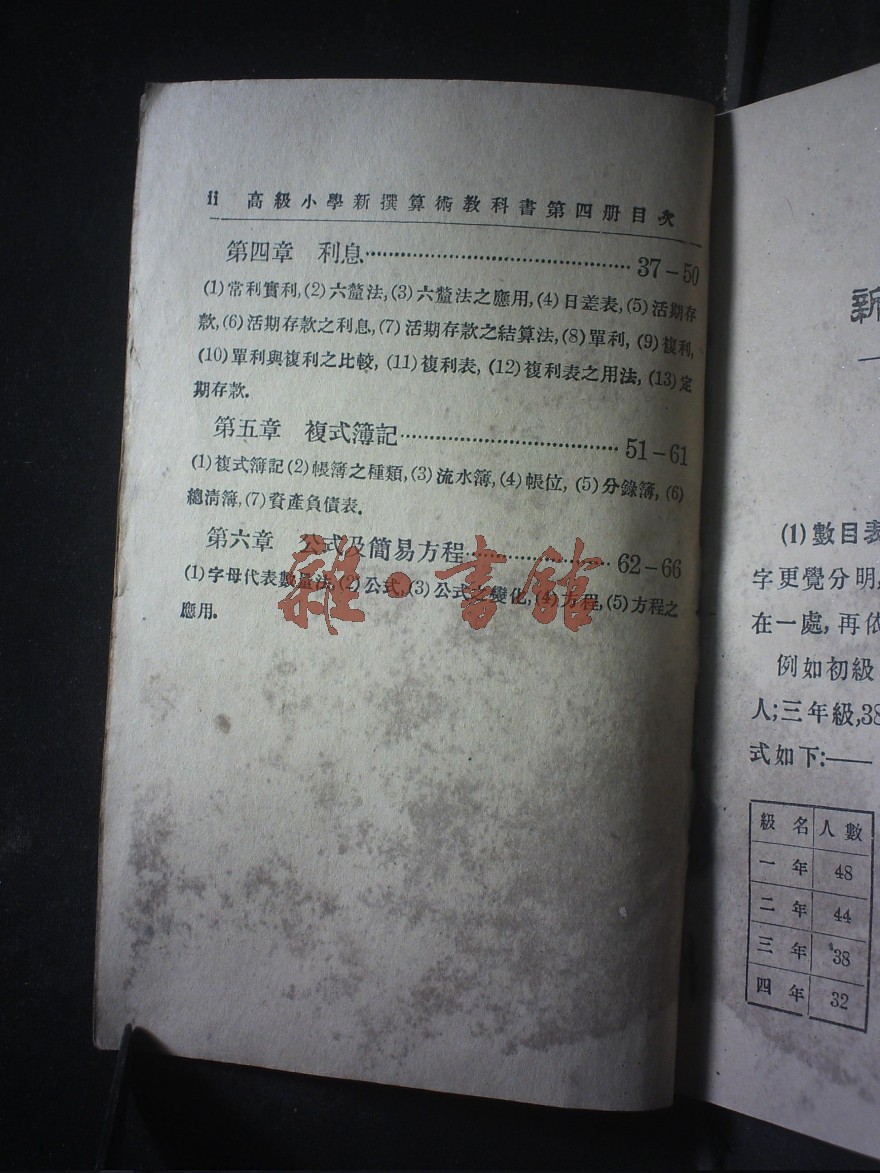 ii 高級小學新撰算術教科書第四册目次
第四章 利息………………………………37–50
(1)常利實利,(2)六釐法,(3)六釐法之應用,(4)日差表,(5)活期存
款,(6)活期存款之利息,(7)活期存款之結算法,(8)單利,(9)複利,
(10)單利與複利之比較,(11)複利表,(12)複利表之用法,(13)定
期存款.
第五章 複式簿記…………………………51–61
(1)複式簿記(2)帳簿之種類,(3)流水簿,(4)帳位,(5)分錄簿,(6)
總清簿,(7)資產負債表.
第六章 公式及簡易方程………………62–66
(1)字母代表數量法,(2)公式,(3)公式之變化,(4)方程,(5)方程之
應用.
雜·書館
新
(1)數目表
字更覺分明,
在一處,再依
例如初級
人;三年級,38
式如下:——
級名 人數
一年 48
二年 44
三年 38
四年 32